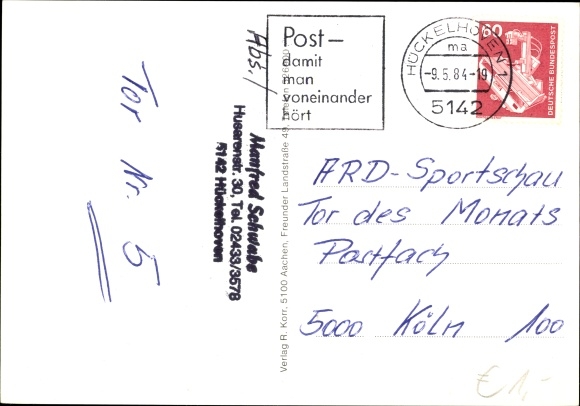 Post –
damit
man
voneinander
hört
HÜCKELHOVEN 1
ma
-9.5.84-19
5142
60
DEUTSCHE BUNDESPOST
Abs./
Manfred Schwabe
Husarenstr. 30, Tel. 02433/3578
5142 Hückelhoven
Tor Nr. 5
Verlag R. Korr, 5100 Aachen, Freunder Landstraße 49, Telefon
ARD-Sportschau
Tor des Monats
Postfach
5000 Köln 100
€ 1,-